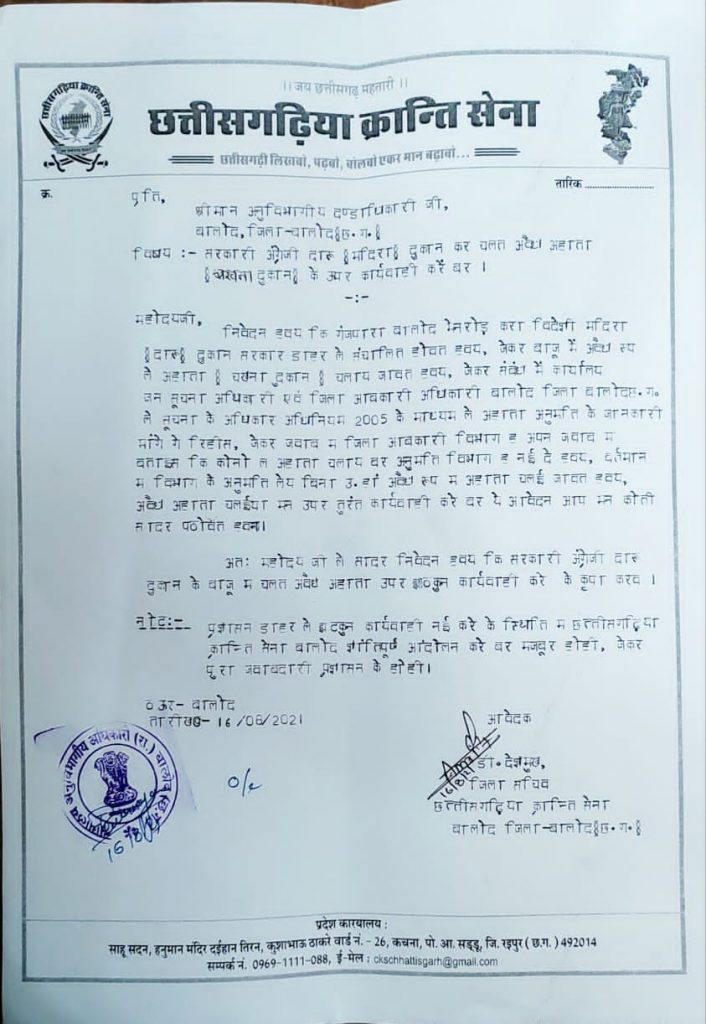 ।। जय छत्तीसगढ़ महतारी ।।
छत्तीसगढ़िया क्रान्ति सेना
छत्तीसगढ़िया क्रान्ति सेना
छत्तीसगढ़ी लिखबो, पढ़बो, बोलबो एकर मान बढ़ाबो...
क्र.
तारिक ....................
प्रति,
श्रीमान अनुविभागीय दण्डाधिकारी जी,
बालोद, जिला-बालोद(छ.ग.)
विषय :- सरकारी अंग्रेजी दारू (मदिरा) दुकान कर चलत अवैध अहाता
(चखना दुकान) के उपर कार्यवाही करे बर ।
-:-
महोदयजी,
निवेदन हवय कि गंजपारा बालोद मेनरोड़ करा विदेशी मदिरा
(दारू) दुकान सरकार डाहर ले संचालित होवत हवय, जेकर बाजू में अवैध रूप
ले अहाता ( चखना दुकान ) चलाय जावत हवय, जेकर संबंध में कार्यालय
जन सूचना अधिकारी एवं जिला आबकारी अधिकारी बालोद जिला बालोदछ.ग.
ले सूचना के अधिकार अधिनियम 2005 के माध्यम ले अहाता अनुमति के जानकारी
मांगे गे रिहीस, जेकर जवाब म जिला आबकारी विभाग ह अपन जवाब म
बताइस कि कोनो ल अहाता चलाय बर अनुमति विभाग ह नई दे हवय, वर्तमान
म विभाग के अनुमति लेय बिना उ.हां अवैध रूप म अहाता चलाई जावत हवय,
अवैध अहाता चलईया मन उपर तुरंत कार्यवाही करे बर ये आवेदन आप मन कोती
सादर पठोवत हवन।
अतः महोदय जी ले सादर निवेदन हवय कि सरकारी अंग्रेजी दारू
दुकान के बाजू म चलत अवैध अहाता उपर झटकुन कार्यवाही करे के कृपा करव ।
नोट:-- प्रशासन डाहर ले झटकुन कार्यवाही नई करे के स्थिति म छत्तीसगढ़िया
क्रान्ति सेना बालोद शांतिपूर्ण आंदोलन करे बर मजबूर होही, जेकर
पुरा जवाबदारी प्रशासन के होही।
ठऊर- बालोद
तारीख- 16/08/2021
आवेदक
16/8/21
डी. देशमुख,
जिला सचिव
छत्तीसगढ़िया क्रान्ति सेना
बालोद जिला-बालोद(छ.ग.)
कार्यालय अनुविभागीय अधिकारी (रा.) बालोद (छ.ग.)
O/c
16/8/21
प्रदेश कारयालय :
साहू सदन, हनुमान मंदिर दईहान तिरन, कुशाभाऊ ठाकरे वार्ड नं. - 26, कचना, पो. आ. सड्डू, जि. रइपुर ( छ.ग. ) 492014
सम्पर्क नं. 0969-1111-088, ई-मेल : ckschhattisgarh@gmail.com